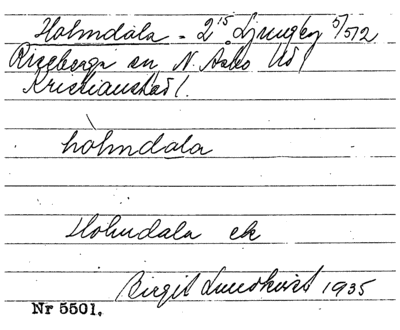 Holmdala - 2¹⁵ Ljungby 5/512
Riseberga sn, N. Åsbo Hd/
Kristianstad l.
hòlmdala
Holmdala ek
Birgit Lundkvist 1935
Nr 5501.